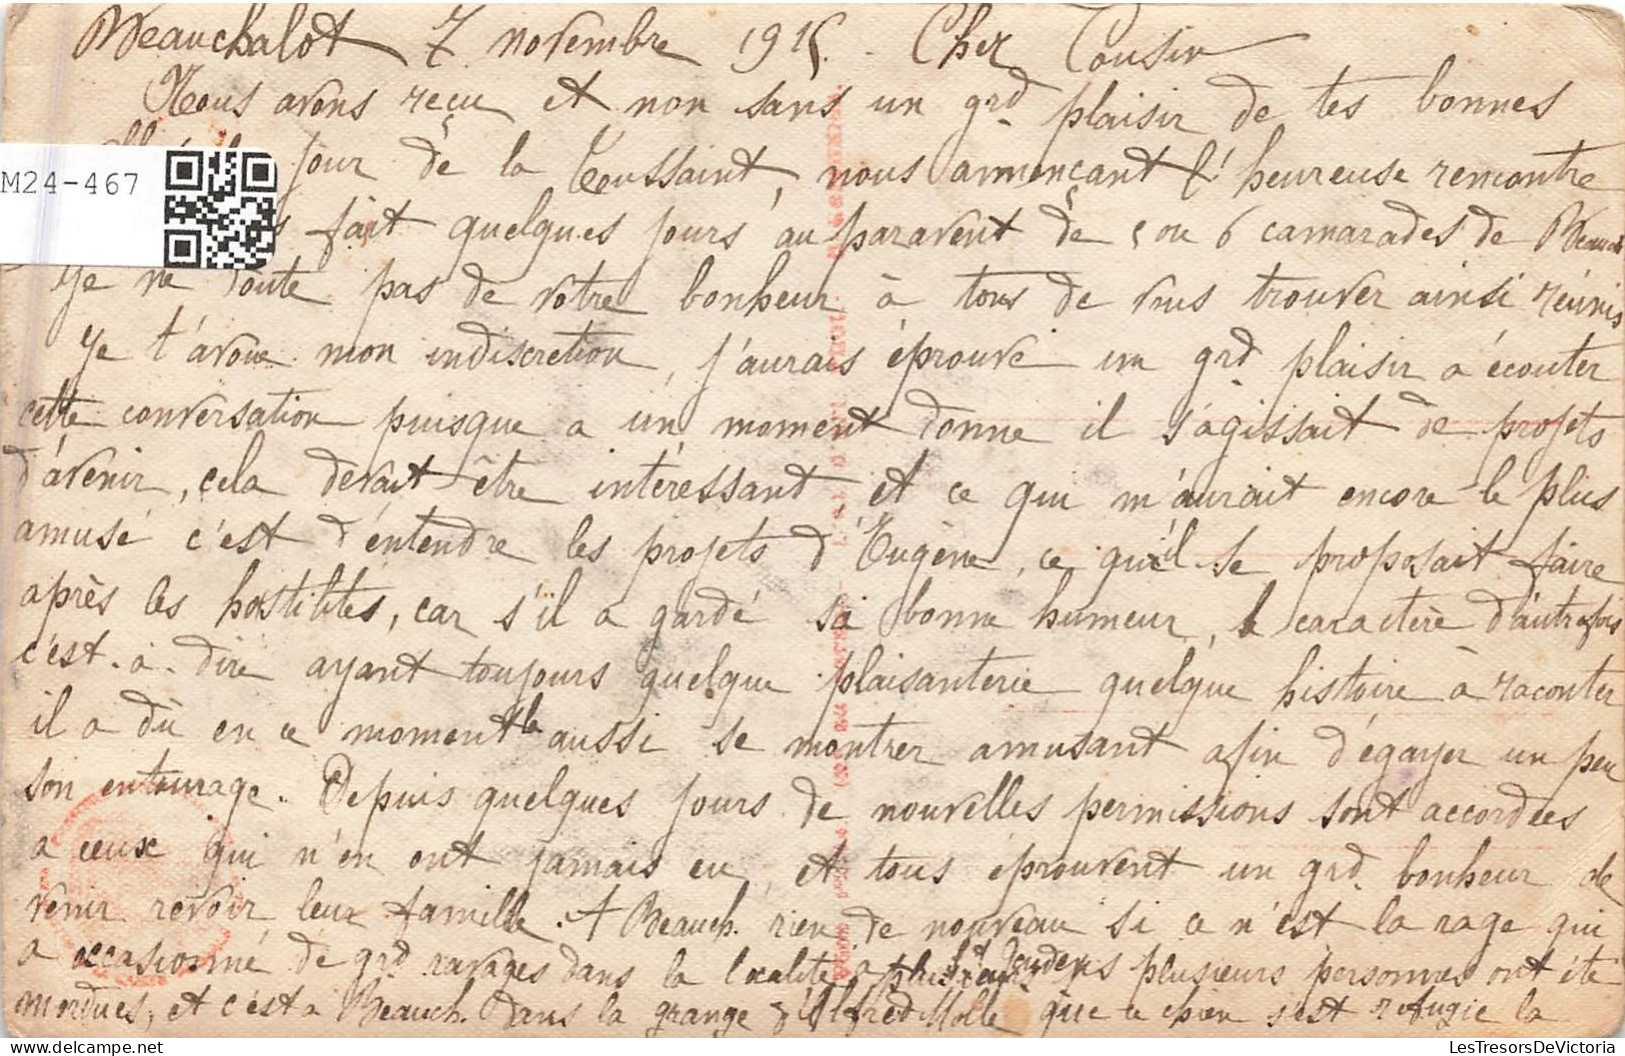 Beauchalot 7 novembre 1915. Cher Cousin
Nous avons reçu et non sans un grd plaisir de tes bonnes
jour de la Toussaint, nous annonçant l'heureuse rencontre
M24-467
fait quelques jours auparavent de 5 ou 6 camarades de Beauch
Je ne doute pas de votre bonheur à tous de vous trouver ainsi réunis
Je t'avoue mon indiscretion, j'aurais éprouvé un grd plaisir a écouter
cette conversation puisque a un moment donne il s'agissait de projets
d'avenir, cela devait être intéressant et ce qui m'aurait encore le plus
amusé c'est d'entendre les projets d'Eugène, ce qu'il se proposait faire
après les hostilites, car s'il a gardé sa bonne humeur, le caractère d'autrefois
c'est-à-dire ayant toujours quelque plaisanterie quelque histoire à raconter
il a dû en ce moment la aussi se montrer amusant afin d'égayer un peu
son entourage. Depuis quelques jours de nouvelles permissions sont accordées
a ceux qui n'en ont jamais eu, et tous éprouvent un grd bonheur de
venir revoir leur famille. A Beauch. rien de nouveau si ce n'est la rage qui
a occasionné de grd ravages dans la localité, a plusieurs personnes ont été
mordues, et c'est a Beauch. dans la grange d'Alfred Molle que ce chien s'est refugié la
LesTresorsDeVictoria